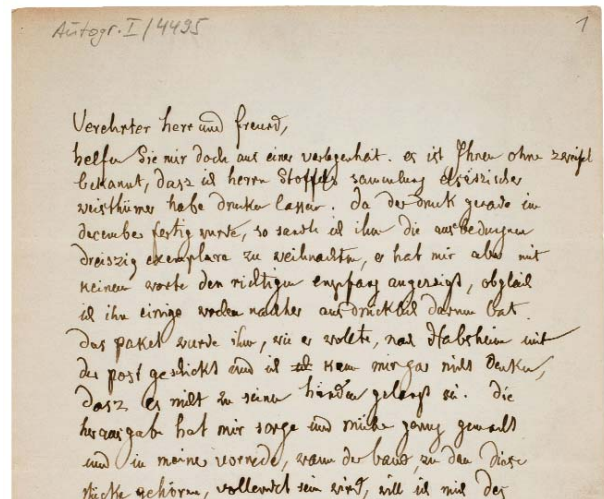 Autogr. I/4495
1
Verehrter herr und freund,
helfen Sie mir doch aus einer verlegenheit. es ist Ihnen ohne zweifel
bekannt, dasz ich herrn Stoffels sammlung elsässischer
weisthümer habe drucken lassen. da der druck gerade im
december fertig wurde, so sandte ich ihm die ausbedungnen
dreiszig exemplare zu weihnachten, er hat mir aber mit
keinem worte den richtigen empfang angezeigt, obgleich
ich ihn einige wochen nachher ausdrücklich darum bat.
das paket wurde ihm, wie er wollte, nach Habsheim mit
der post geschickt und ich kann mir gar nicht denken,
dasz es nicht zu seinen händen gelangt sei. die
herausgabe hat mir sorge und mühe genug gemacht
und in meiner vorrede, wann der band, zu dem diese
stücke gehören, vollendet sein wird, will ich mich des